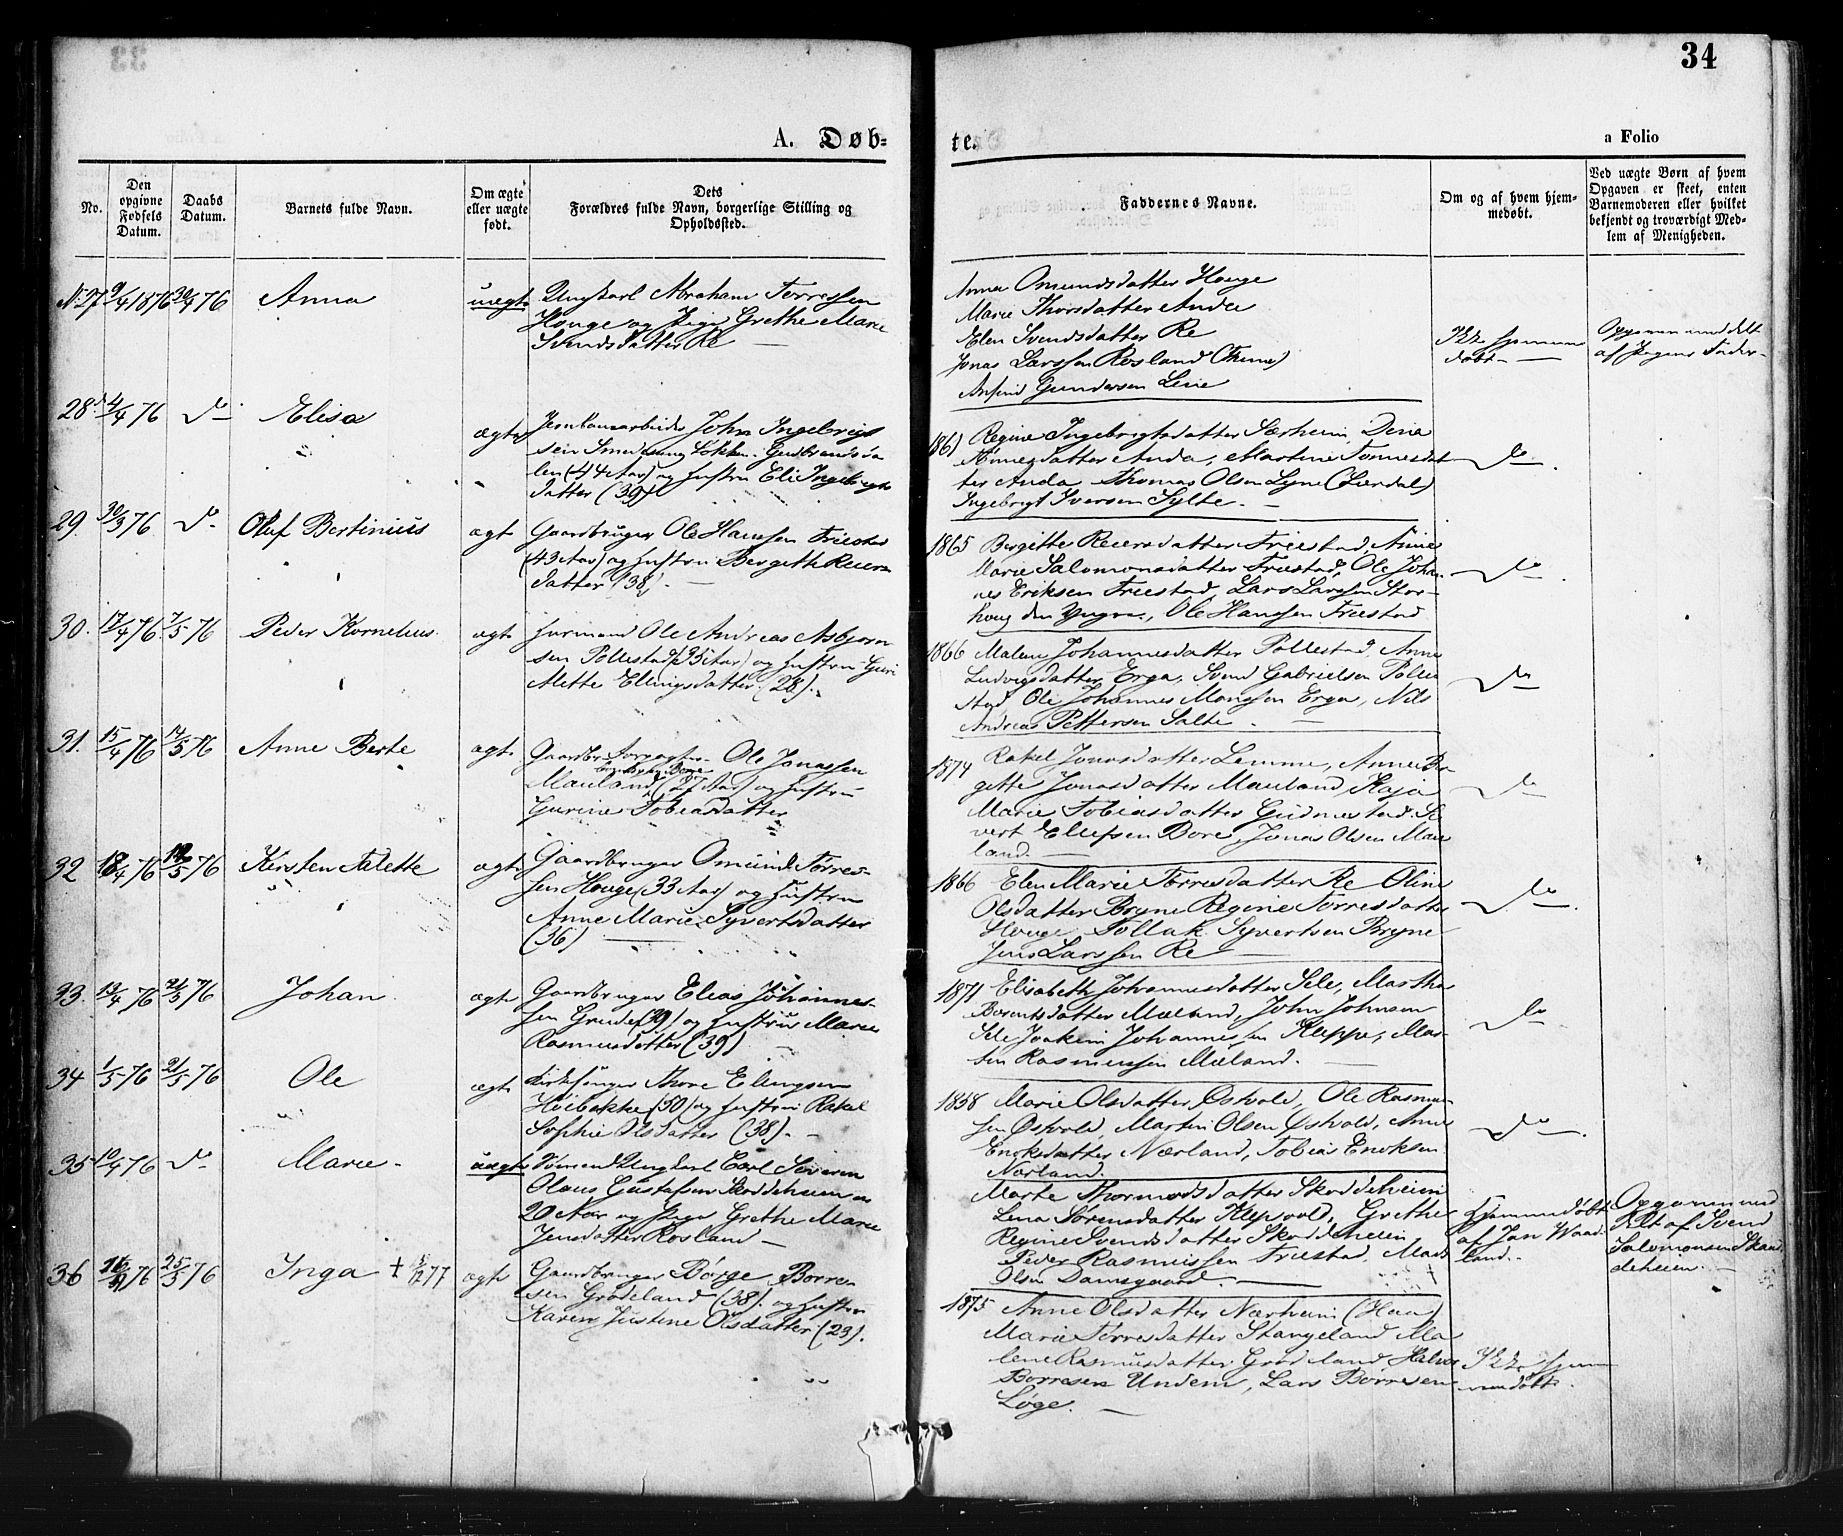 34
A. Døb=
te.
a Folio
No.
Den opgivne Fødsels Datum.
Daabs Datum.
Barnets fulde Navn.
Om ægte eller uægte født.
Dets Forældres fulde Navn, borgerlige Stilling og Opholdssted.
Faddernes Navne.
Om og af hvem hjem-
medøbt.
Ved uægte Børn af hvem
Opgaven er skeet, enten
Barnemoderen eller hvilket
bekjendt og troværdigt Med-
lem af Menigheden.
N. 27 9/4 1876 30/4 76 Anna uægte Ungkarl Abraham Torressen
Houge og Pige Grethe Marie
Svendsdatter Re
Anna Omundsdatter Houge
Marie Thorsdatter Anda
Elen Svendsdatter Re
Jonas Larssen Rosland (Thime)
Gundersen Line
Ikke hjemme
døbt
Opgaven meddelt
af Pigens Fader
28 4/4 76 do Elisa ægte Jernbanearbeider John Ingebrigt
sen Løkken Gudbrandsda
len (44 Aar) og Hustru Eli Ingebrigts
datter (39)
1861 Regine Ingebrigtsdatter Særheim, Dina
Anda, Martine Tønnesdat
ter Anda Thomas Olsen Lyne (Lærdal)
Ingebrigt Iversen Sylte
do
29. 30/3 76 do Oluf Bertinius ægte Gaardbruger Ole Hanssen Friestad
(43 Aar) og Hustru Bergith Reiers
datter (38)
1865 Bergitte Reiersdatter Friestad, Anne
Marie Salomonsdatter Friestad, Ole Johan
nes Eriksen Friestad, Lars Larssen Stor-
houg den Yngre, Ole Hanssen Friestad
do
30. 17/4 76 7/5 76 Peder Kornelius ægte Huusmand Ole Andreas Asbjørn
sen Pollestad (35 Aar) og Hustru Guri
Alette Ellingsdatter (28)
1866 Malene Johannesdatter Pollestad, Anne
Ludvigsdatter Erga, Svend Gabrielsen Polle
stad, Ole Johannes Monssen Erga, Nils
Andreas Pettersen Salte
do
31. 15/4 76 14/5 76 Anne Berte ægte Gaardbr Ole Jonassen
Mauland (27 Aar) og Hustru
Gurine Tobiasdatter
1874 Rakel Jonasdatter Lemme, Anne Ber
gitte Jonasdatter Mauland Kaja
Marie Tobiasdatter Gudmestad Si
vert Ellefsen Bore, Jonas Olsen Mau
land.
do
32 18/4 76 /5 76 Kirsten Talette ægte Gaardbruger Omund Tørres-
sen Houge (33 Aar) og Hustru
Anne Marie Syvertsdatter
(36)
1866 Elen Marie Torresdatter Re Oline
Olsdatter Bryne Regine Torresdatter
Houge Tollak Syvertsen Bryne
Jens Larssen Re
do
33. 13/4 76 21/5 76 Johan ægte Gaardbruger Elias Johannes-
sen Grude (39) og Hustru Marie
Rasmusdatter (39)
1871 Elisabeth Johannesdatter Sele, Martha
Berentsdatter Mæland, John Johnsen
Sele Joakim Johannessen Kleppe, Mar-
tin Rasmussen Mæland.
do
34 1/5 76 21/5 76 Ole ægte Kirkesanger Thore Elingsen
Høibakke (50) og Hustru Rakel
Sophie Olsdatter (38)
1858 Marie Olsdatter Østvold, Ole Rasmus-
sen Østvold, Martin Olsen Østvold, Anne
Eriksdatter Nærland, Tobias Eriksen
Nærland.
do
35 10/4 76 do Marie uægte Sømand Ungkarl Carl Severin
Olaus Gustafsen Skoddeheien
20 Aar og Pige Grethe Marie
Jensdatter Rosland
Marte Thormodsdatter Skoddeheien
Lena Sørensdatter Grethe
Regine Svendsdatter Skoddeheien
Peder Rasmussen Friestad, Mads
Olsen Damsgaard
Hjemmedøbt
af Jan Waad
land.
Opgaven med
delt af Svend
Salomonsen Skod
deheien.
36 16/4 76 25/5 76 Inga + 77 ægte Gaardbruger Børge Borre
sen Grødeland (38) og Hustru
Karen Justine Olsdatter (23).
1875 Anne Olsdatter Nærheim (Haa)
Marie Torresdatter Stangeland Ma
lene Rasmusdatter Grødeland Halvor
Borresen Undem, Lars Borresen
Løge.
Ikke hjem
medøbt.